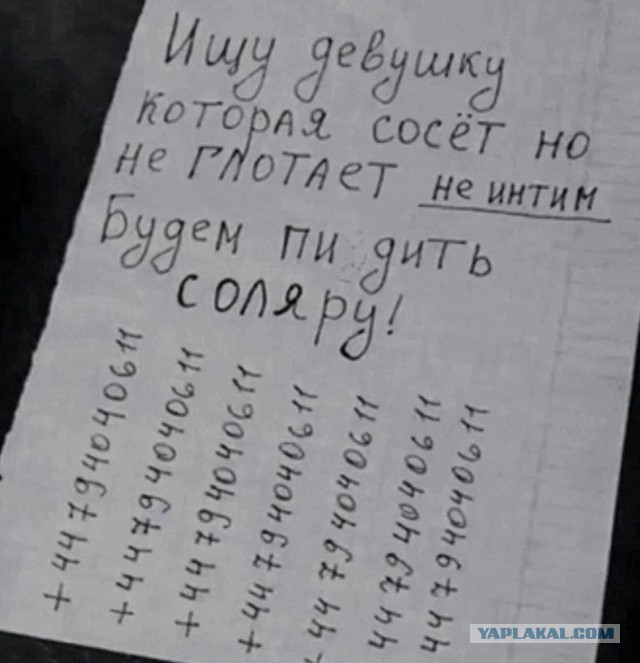 Ищу девушку
которая сосёт но
не глотает не интим
Будем пи дить
соляру!
+44794040611
+44794040611
+44794040611
+44794040611
+44794040611
44794040611
44794040611
YAPLAKAL.COM